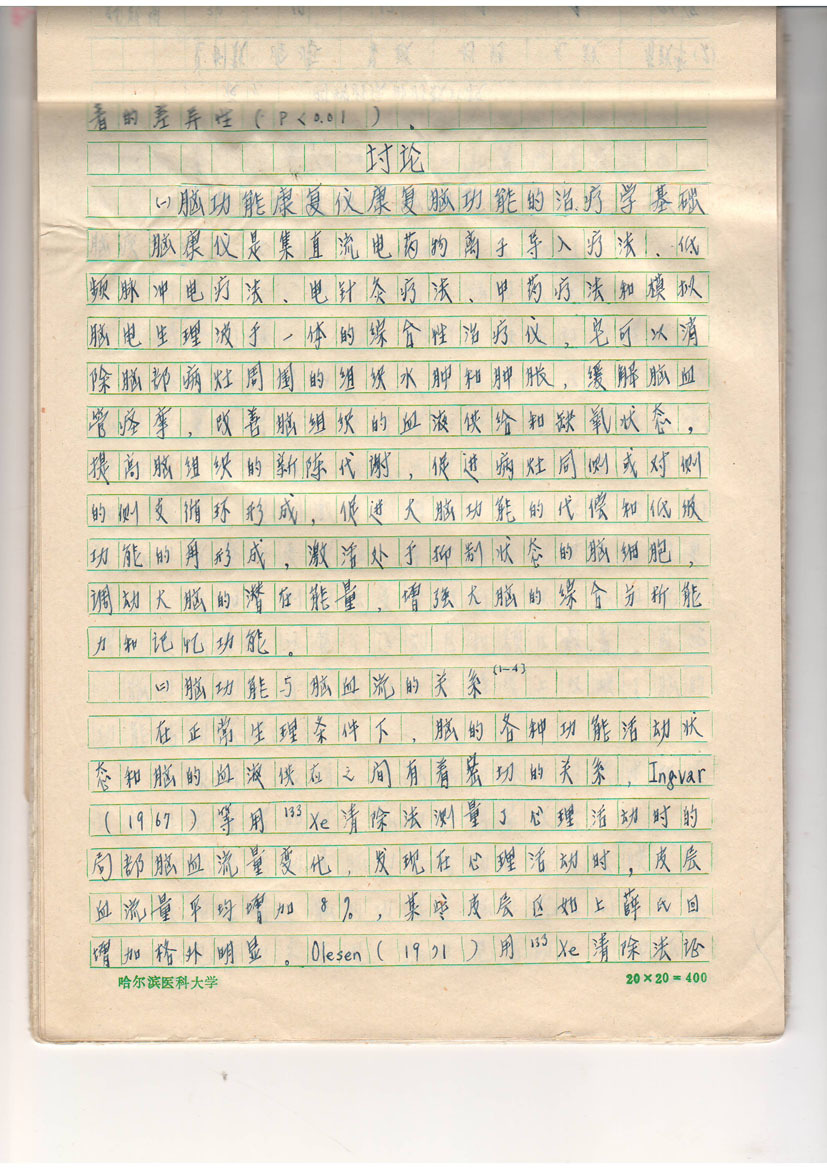 着的差异性(P<0.01)。
讨论
㈠脑功能康复仪康复脑功能的治疗学基础
脑康仪是集直流电药物离子导入疗法、低
频脉冲电疗法、电针灸疗法、中药疗法和模拟
脑电生理波于一体的综合性治疗仪,它可以消
除脑部病灶周围的组织水肿和肿胀,缓解脑血
管痉挛,改善脑组织的血液供给和缺氧状态。
提高脑组织的新陈代谢,促进病灶同侧或对侧
的侧支循环形成,促进大脑功能的代偿和低级
功能的再形成,激活处于抑制状态的脑细胞,
调动大脑的潜在能量,增强大脑的综合分析能
力和记忆功能。
㈡脑功能与脑血流的关系[1-4]
在正常生理条件下,脑的各种功能活动状
态和脑的血液供应之间有着密切的关系,Ingvar
(1967)等用133Xe清除法测量了心理活动时的
局部脑血流量变化,发现在心理活动时,皮层
血流量平均增加8%,某些皮层区如上薛氏回
增加格外明显。Olesen(1971)用133Xe清除法证
哈尔滨医科大学
20×20=400